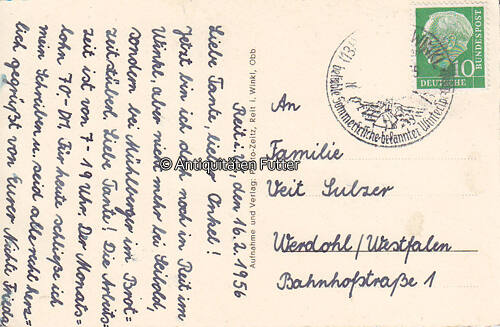 Reit i. W., den 16.2.1956
Liebe Tante, lieber Onkel!
Jetzt bin ich doch noch in Reit im
Winkl, aber nicht mehr bei
sondern bei Mühlberger im Brot=
zeit stüberl. Liebe Tante! Die Arbeits=
zeit ist von 7-19 Uhr. Der Monats=
lohn 70-DM. Für heute schließe ich
mein Schreiben u. seid alle recht herz=
lich gegrüßt von Eurer Nichte Frieda
Aufnahme und Verlag: Foto-Zeitz, Reit i. Winkl, Obb
An
Familie
Veit Sulzer
Werdohl/Westfalen
Bahnhofstraße 1
beliebte Sommerfrische-bekannter Winter
(13
WINKL
DEUTSCHE
BUNDESPOST
10
© Antiquitäten Futter